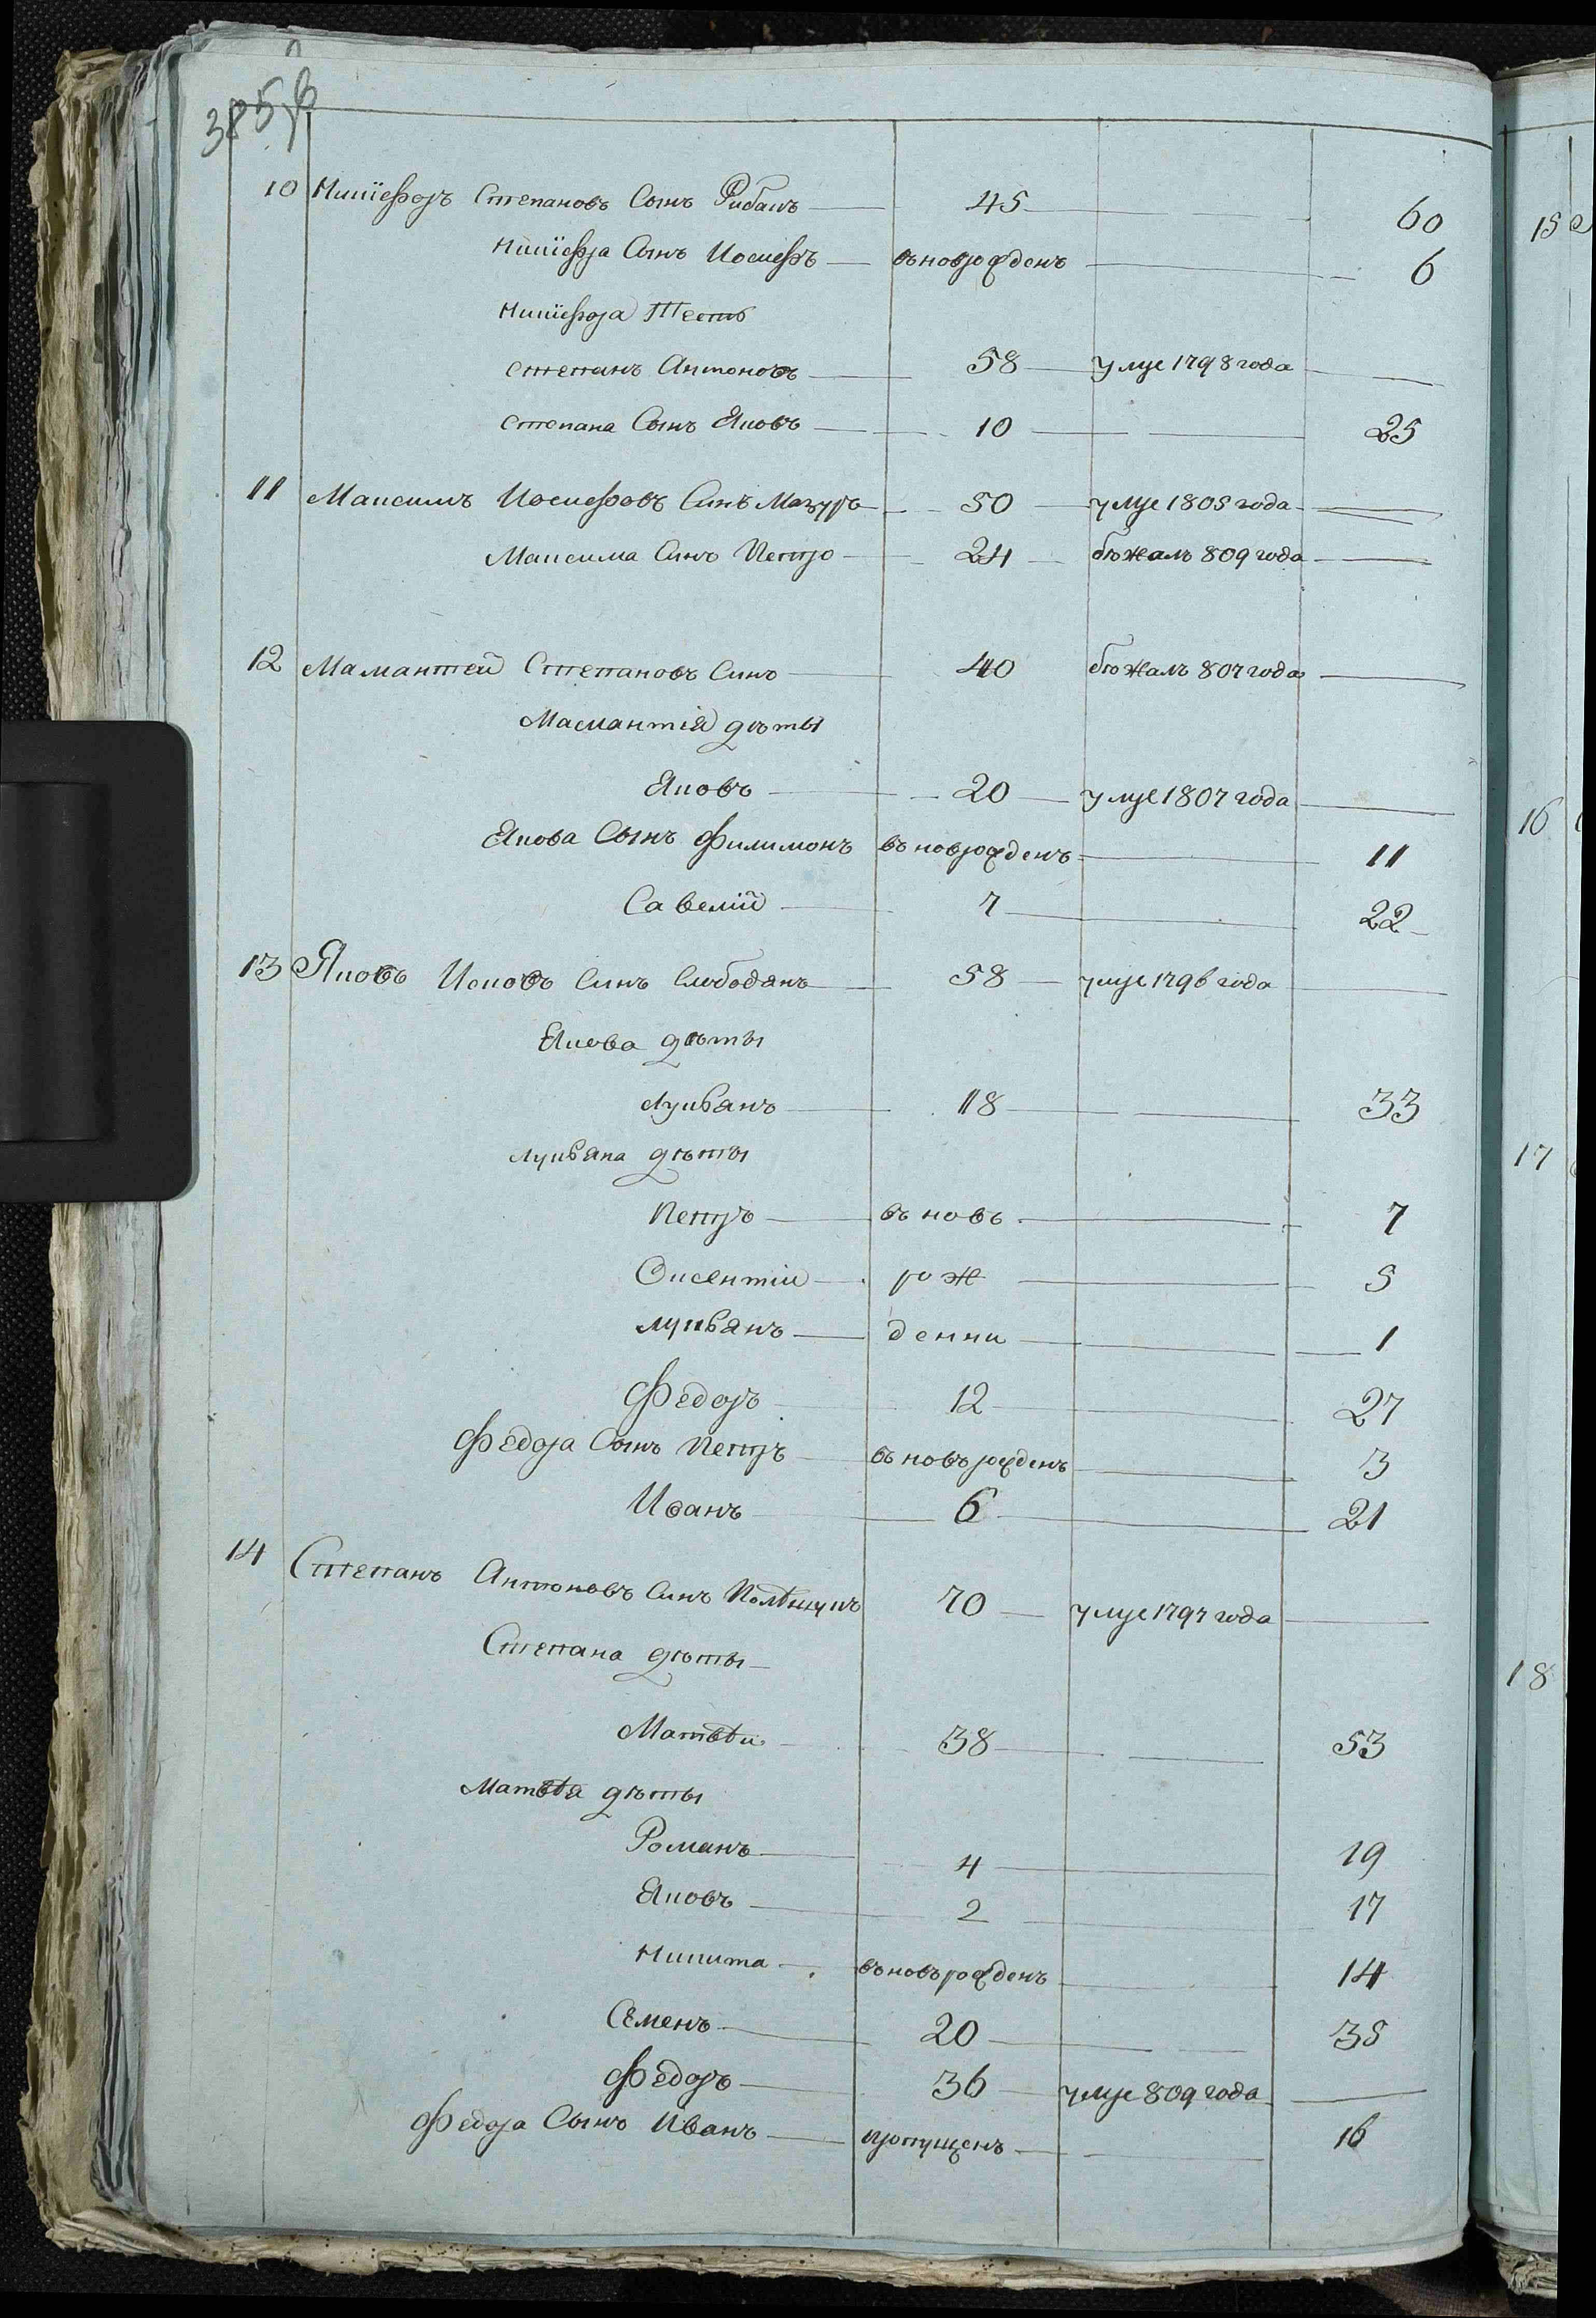 10 Никифоръ Степановъ Сынъ Рибакъ 45 60
Никифора Сынъ Иосифъ въноврожденъ 6
Никифора Тесть
Степанъ Антоновъ 58 умре 1798 года
Степана Сынъ Яковъ 10 25
11 Максимъ Иосифовъ Синъ Мазуръ 50 умре 1805 года
Максима Синъ Петро 24 бѣжалъ 809 года
12 Мамантей Степановъ Синъ 40 бѣжалъ 807 года
Мамантія дѣты
Яковъ 20 умре 1807 года
Якова Сынъ Филимонъ въноврожденъ 11
Савелій 7 22
13 Яковъ Исковъ Синъ Слободянъ 58 умре 1796 года
Якова дѣты
Лукьянъ 18 33
Лукьяна дѣты
Петръ въновъ 7
Оксентій рож 5
Лукьянъ денни 1
Федоръ 12 27
Федора Сынъ Петръ въновъ рожденъ 3
Иванъ 6 21
14 Степанъ Антоновъ Синъ Полѣщукъ 70 умре 1797 года
Степана дѣты
Матвѣй 38 53
Матвѣя дѣты
Романъ 4 19
Яковъ 2 17
Никита въновърожденъ 14
Семенъ 20 35
Федоръ 36 умре 809 года
Федора Сынъ Иванъ пропущенъ 16
15
16
17
18